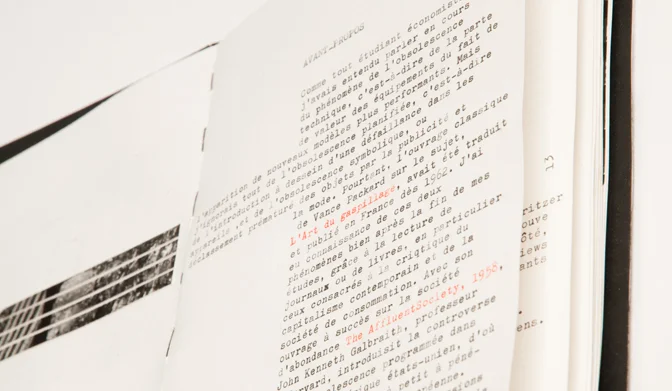 AVANT-PROPOS
Comme tout étudiant économist
j'avais entendu parler en cours
du phénomène de l'obsolescence
technique, c'est-à-dire de la perte
de valeur des équipements du fait de
l'apparition de nouveaux modèles plus performants. Mais
j'ignorais tout de l'obsolescence planifiée, c'est-à-dire
de l'introduction à dessein d'une défaillance dans les
appareils et de l'obsolescence symbolique, ou
déclassement prématuré des objets par la publicité et
la mode. Pourtant, l'ouvrage classique
de Vance Packard sur le sujet,
L'Art du gaspillage, avait été traduit
et publié en France dès 1962. J'ai
eu connaissance de ces deux
phénomènes bien après la fin de mes
études, grâce à la lecture de
journaux ou de livres, en particulier
ceux consacrés à la criqtique du
capitalisme contemporain et de la
société de consommation. Avec son
ouvrage à succès sur la société
d'abondance The AffluentSociety, 1958,
John Kenneth Galbraith, professeur
arvard, introduisit la controverse
olescence programmée dans
ique états-unien, d'où
à petit à péné-
péenne.
sions
13
ritzer
ouve
ôté,
iews
ants
ens.